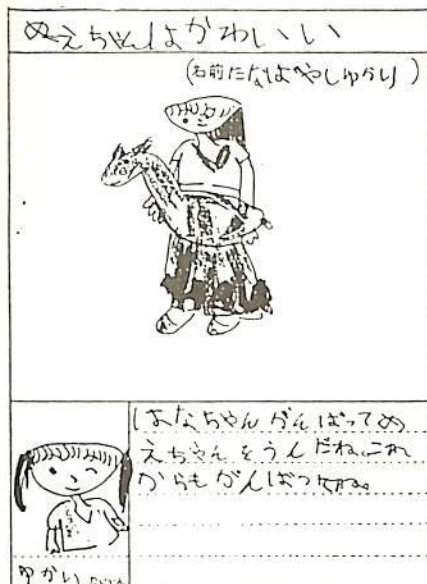 ぬえちゃんはかわいい
(名前たなはやしゆかり)
はなちゃんがんばってぬ
えちゃんをうんだね。これ
からもがんばってね。
ゆかり